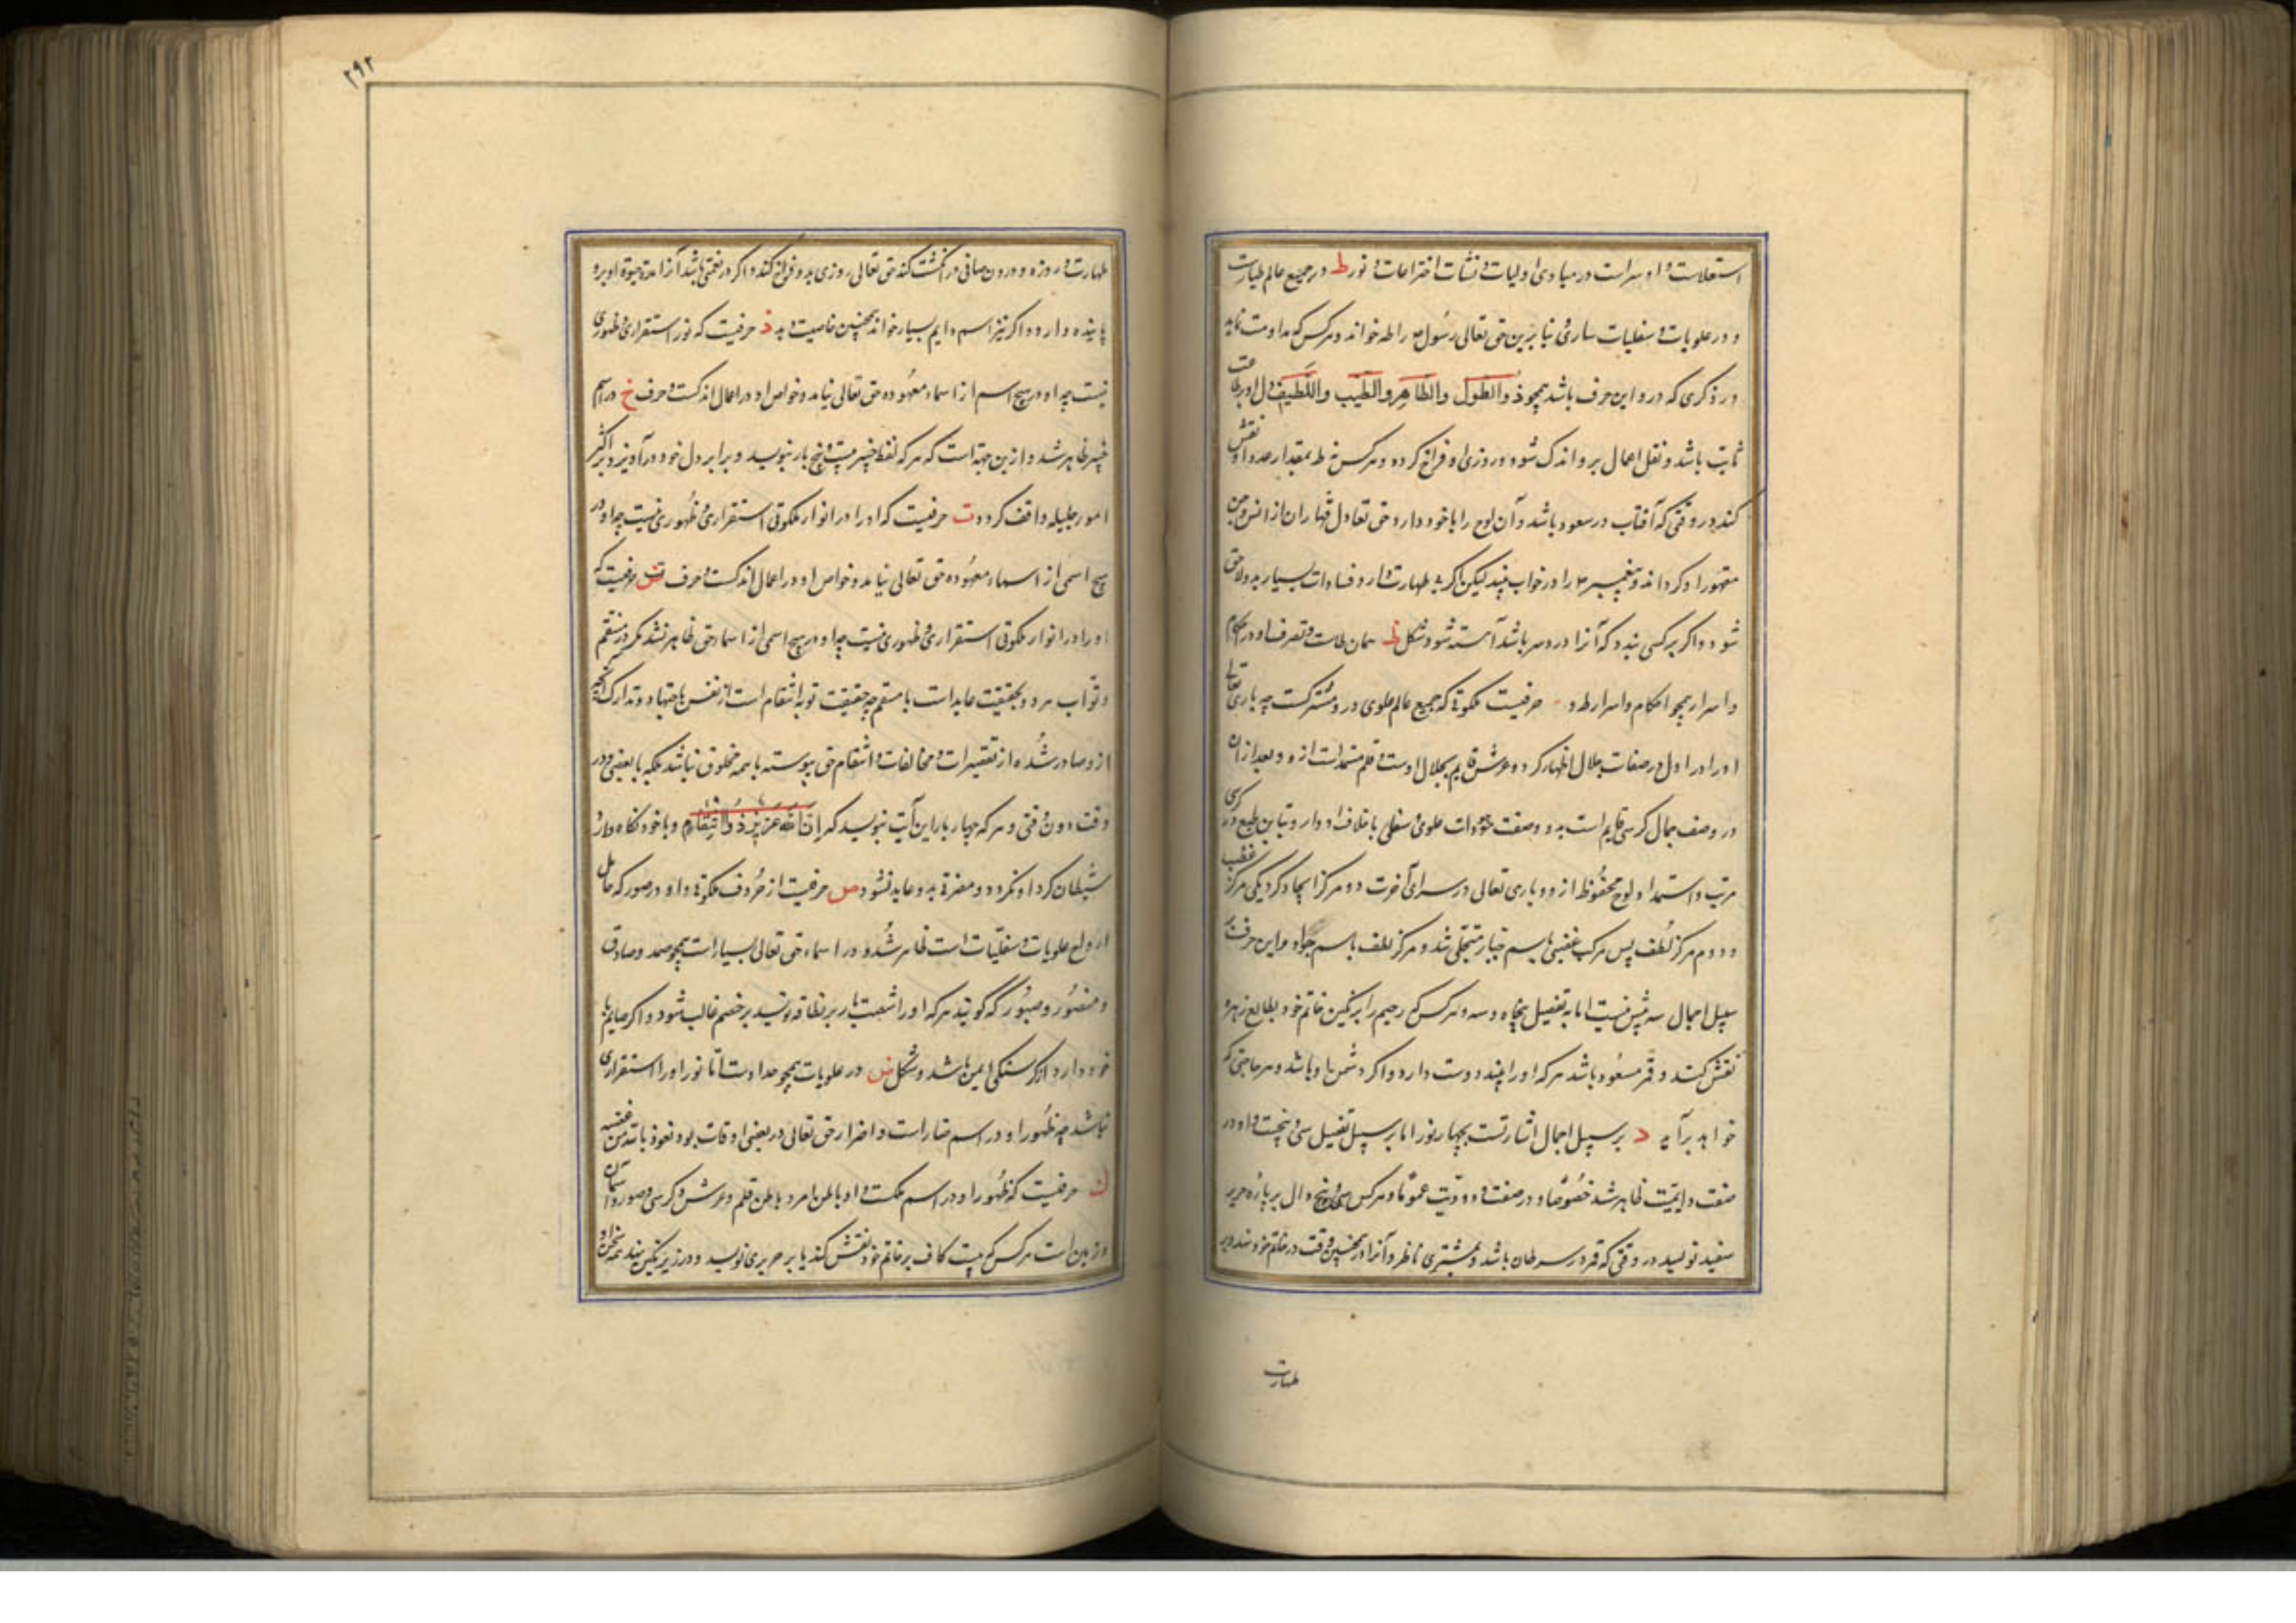 استعلاست و او سراست در مبادی اولیات و نشات اختراعات و نور ط در جمیع عالم طیارت
و در علویات و سفلیات ساری بنابرین حق تعالی رسول را طه خواند و هرکس که مداومت نماید
در ذکری که درو این حرف باشد همچو ذو الطول والطاهر والطیب واللطیف دل او بر طاعت
ثابت باشد و نقل اعمال برو اندک شود و روزی او فراخ گردد و هرکس ط بمقدار عدد او نقش
کند در وقتی که آفتاب در سعود باشد و آن لوح را با خود دارد حق تعالی قهاران از انس و جن
مقهور او گرداند و پیغمبر را در خواب بیند لیکن اگر طهارت دارد فسادات بسیار بدو لاحق
شود و اگر بر کسی بندد که آنرا درد سر باشد آهسته شود و شکل ظ همان طاست و تصرف او در احکام
و اسرار همچو احکام و اسرار ط و حرفیست که جمیع عالم علوی درو مشترکست چه باری تعالی
او را در اول در صفات جلال اظهار کرد و عرش قایم بجلال اوست و قلم مستمد است ازو و بعد از آن
در وصف جمال کرسی قایم است بدو و صفت علوی و سفلی باختلاف ادوار و تباین طبع در کرسی
مرتب و استمداد لوح محفوظ ازو و باری تعالی در سرای آخرت دو مرکز ایجاد کرد یکی مرکز غضب
و دوم مرکز لطف پس مرکب غضبی باسم جبار متجلی شد و مرکز لطف باسم جواد و این حرف بر
سبیل اجمال سه بیش نیست اما به تفصیل پنجاه و سه و هرکس که رحیم را بر نگین خاتم خود بطالع زهره
نقش کند و قمر مسعود باشد هرکه او را بیند دوست دارد و اگر دشمن او باشد و هر حاجتی که
خواهد برآید د بر سبیل اجمال اشارتست بچهار نور اما بر سبیل تفصیل سی و پنجست و او در
صفت دایمیت ظاهر شد خصوصا و در صفت ودودیت عموما و هرکس سی و پنج دال بر پاره حریر
سفید نویسد در وقتی که قمر در سرطان باشد و مشتری ناظر و آنرا در همچنین وقت در خاتم خود نهد و بر
طهارت
۲۹۲
طهارت و روزه و درون صافی در انگشت کند حق تعالی روزی برو فراخ کند و اگر در نعمتی باشد آنرا مدة حیوة او برو
پاینده دارد و اگر نیز اسم دایم بسیار خواند همچنین خاصیت دهد ذ حرفیست که نور استقراری و ظهوری
نیست چه او در هیچ اسم از اسماء معهوده حق تعالی نیامد و خواص او در اعمال اندکست و حرف خ در اسم
خبیر ظاهر شد و ازین جهة است که هرکه لفظ خبیر بیست و پنج بار بنویسد و برابر دل خود درآویزد بر اکثر
امور جلیله واقف گردد ت حرفیست که او را در انوار ملکوتی استقراری و ظهوری نیست چه او در
هیچ اسمی از اسماء معهوده حق تعالی نیامد و خواص او در اعمال اندکست و حرف ت حرفیست که
او را در انوار ملکوتی استقراری و ظهوری نیست چه او در هیچ اسمی از اسماء حق ظاهر نشد مگر در منتقم
و تواب هر دو بحقیقت عاید است با منتقم چه حقیقت توبه انتقام است از نفس باجتهاد و تدارک آنچه
ازو صادر شده از تقصیرات و مخالفات و انتقام حق پیوسته با همه مخلوق نباشد بلکه با بعضی و در
وقت دون وقتی و هرکه چهار بار این آیت بنویسد که ان الله عزیز ذو انتقام و با خود نگاه دارد
شیطان گرد او نگردد و مضرة بدو عاید نشود ص حرفیست از حروف و او در صور که حامل
ارواح علویات و سفلیات است ظاهر شد و در اسماء حق تعالی بسیار است همچو صمد و صادق
و منصور و صبور گویند هرکه او را شصت بار بر نویسد بر خصم غالب شود و اگر صایم با
خود دارد از گرسنگی ایمن باشد و شکل ض در علویات همچو صداوست اما نور او را استقراری
نباشد چه ظهور او در اسم ضار است و اضرار حق تعالی در بعضی اوقات بود نعوذ بالله من غضبه
ک حرفیست که ظهور او در اسم ملکست و او باطن امر و باطن قلم و عرش و کرسی و صور و آسمان
و زمین است هرکس که بیست کاف بر خاتم خود نقش کند یا بر حریری نویسد و در زیر نگین نهد همه سخن او